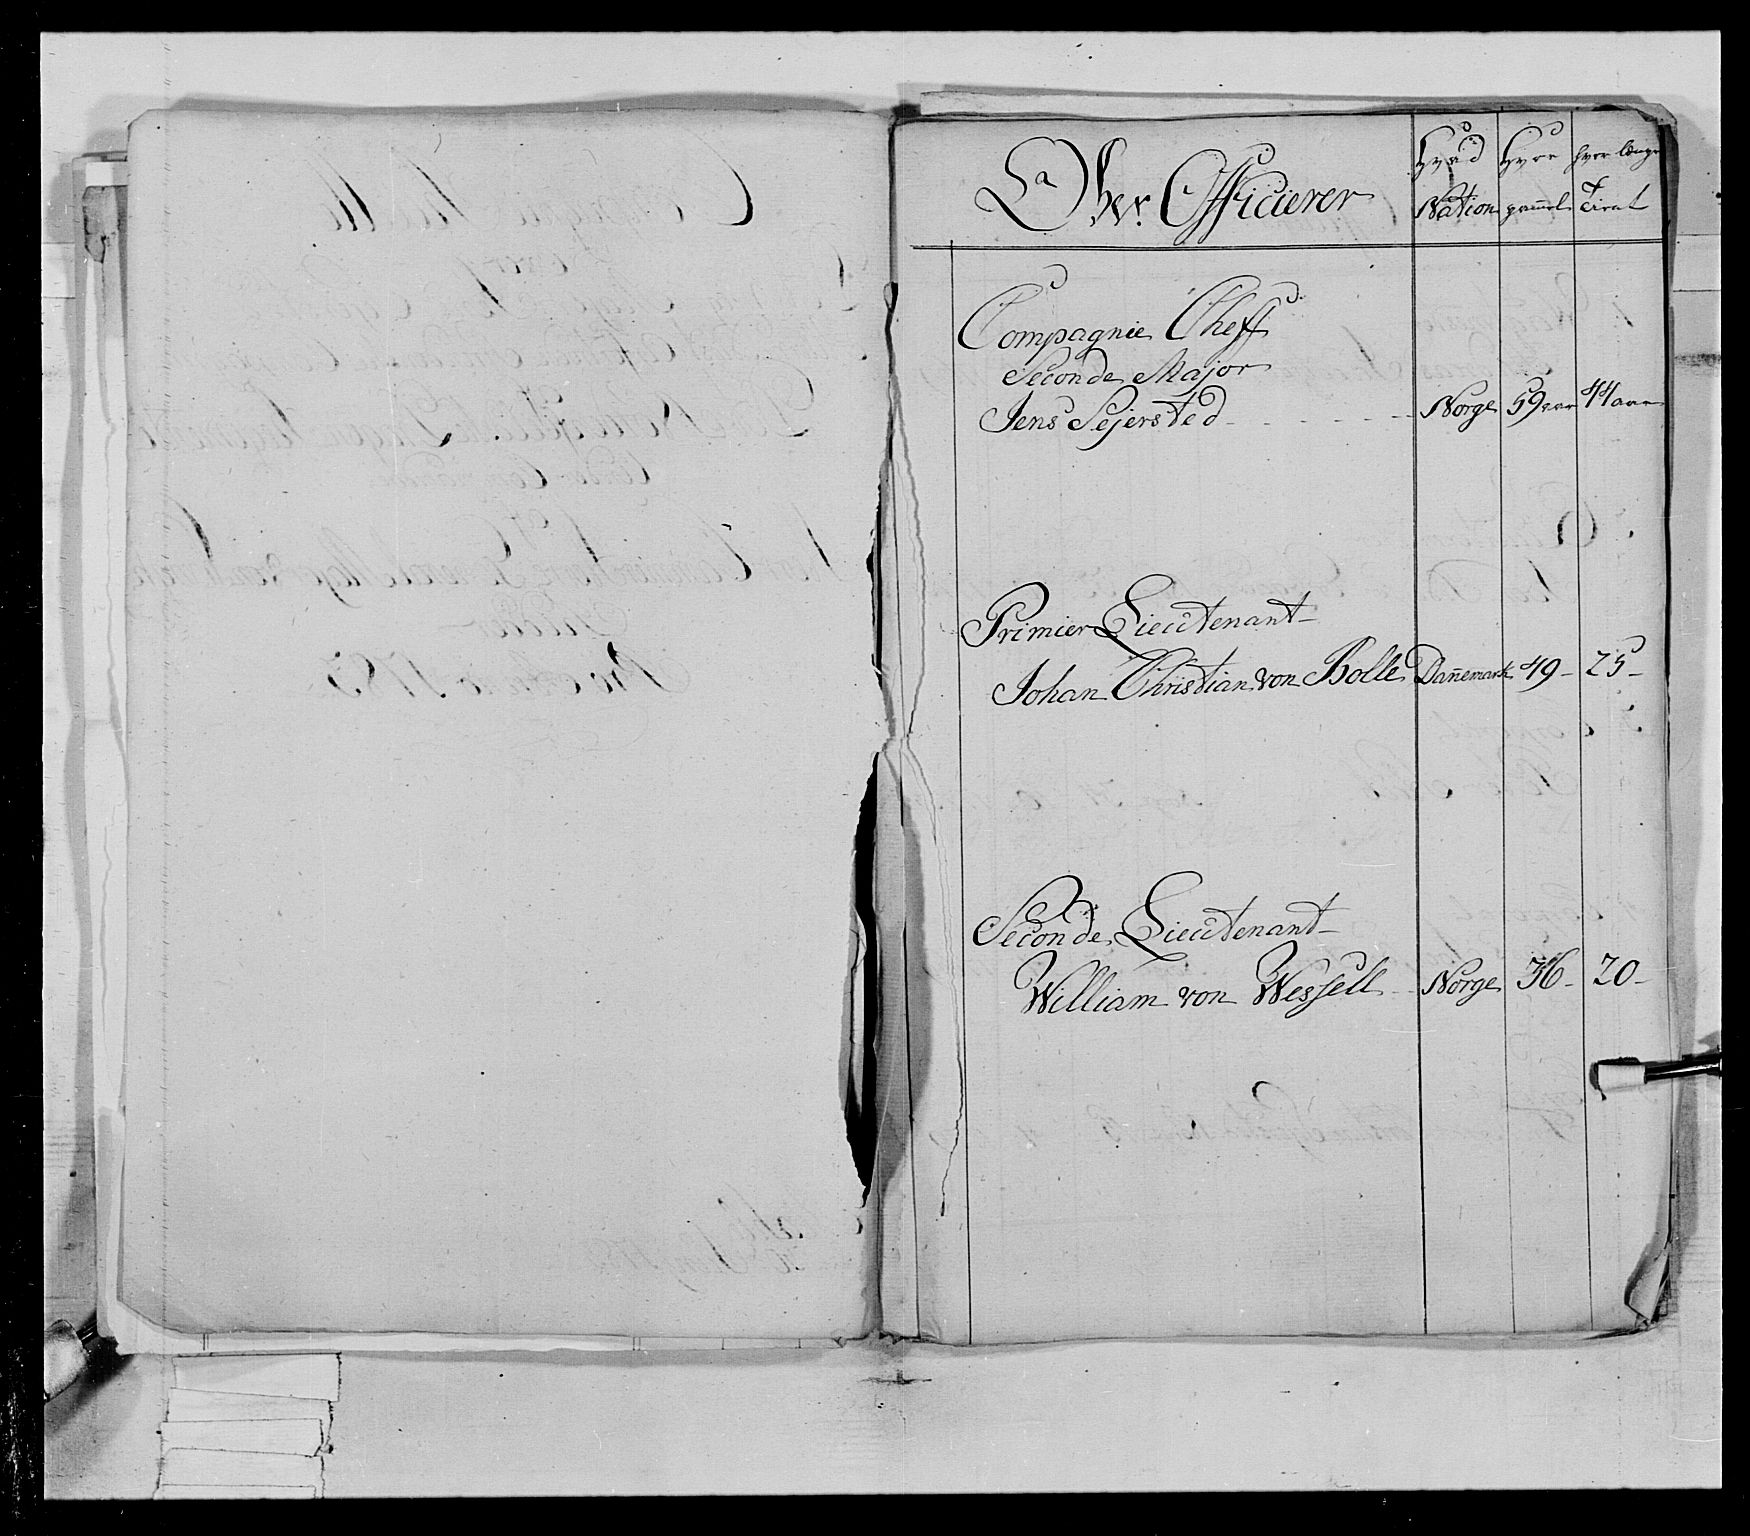 Ober Officierer
Hvad Nation
Hvor gammel
hvor længe Tient
Compagnie Cheff
Seconde Major
Jens Sejersted Norge 59 aar 44 aar
Primier Lieutenant
Johan Christian von Bolle Dannemark 49 25
Seconde Lieutenant
William von Wessell Norge 36 20